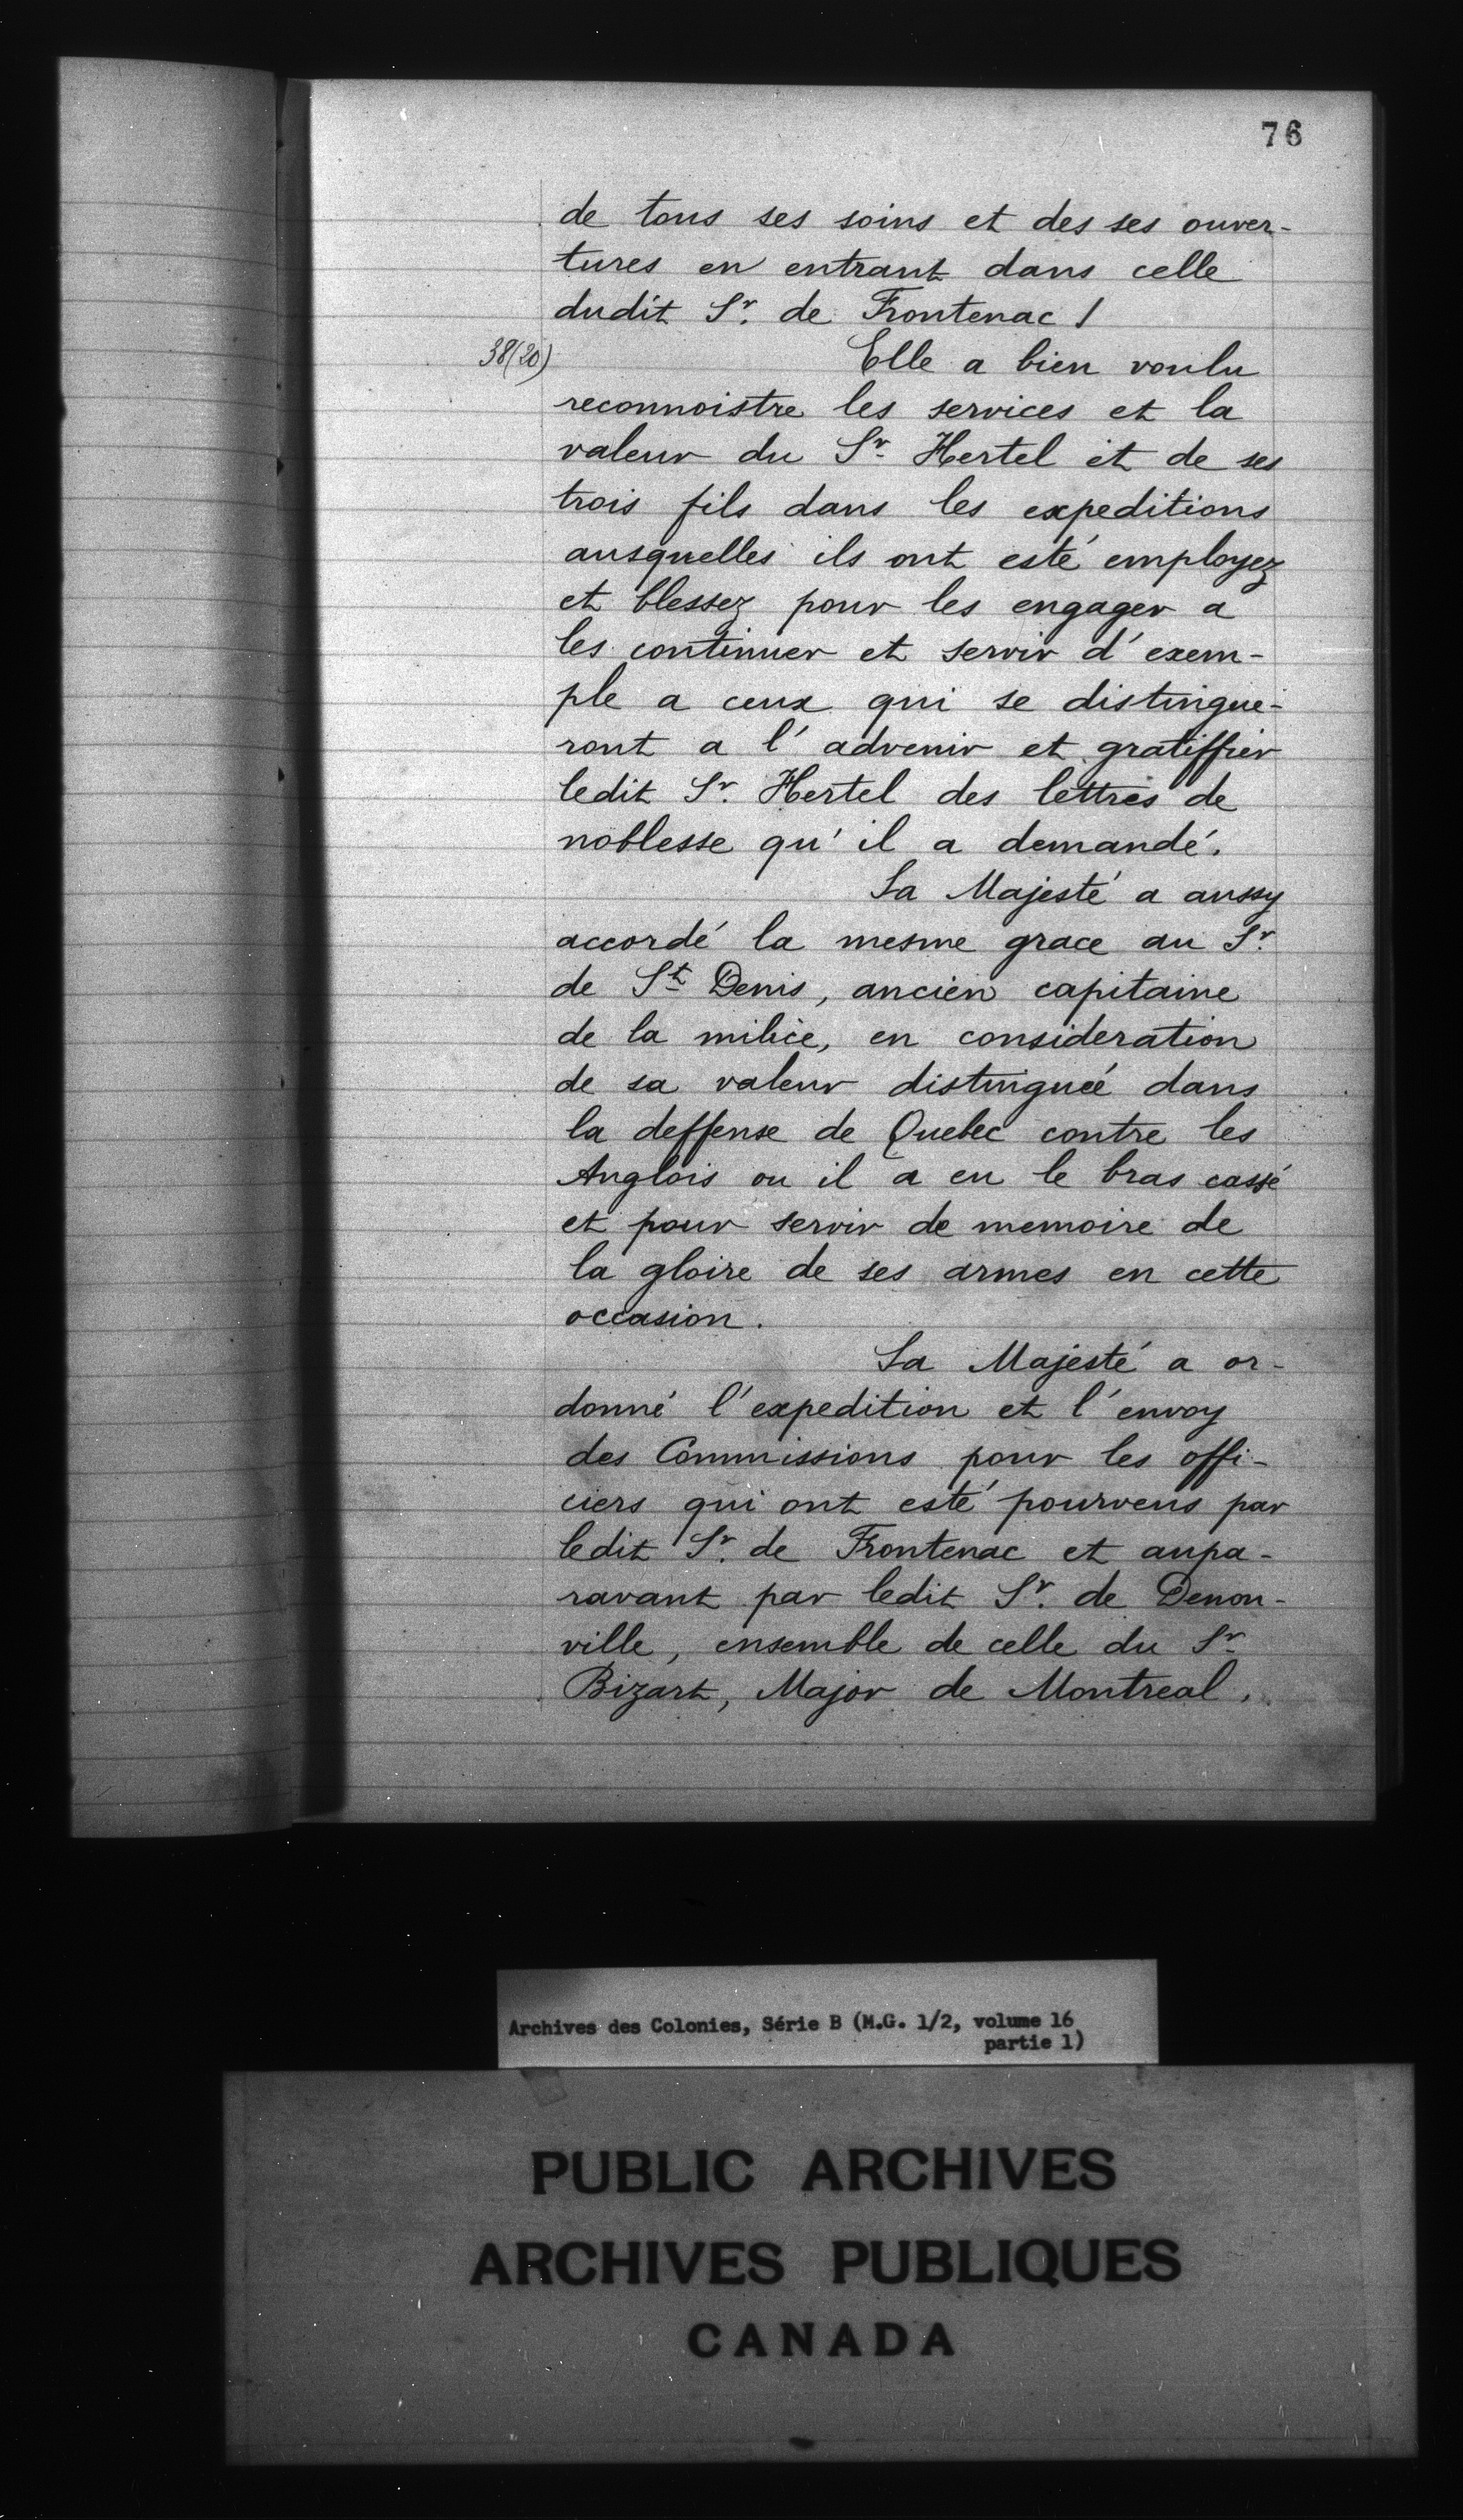 76
de tous ses soins et des ses ouver-
tures en entrant dans celle
dudit Sr. de Frontenac /
38(20)
Elle a bien voulu
reconnoistre les services et la
valeur du Sr. Hertel et de ses
trois fils dans les expeditions
ausquelles ils ont esté employez
et blessez pour les engager a
les continuer et servir d'exem-
ple a ceux qui se distingue-
ront a l'advenir et gratiffier
ledit Sr. Hertel des lettres de
noblesse qu'il a demandé.
Sa Majesté a aussy
accordé la mesme grace au Sr.
de St Denis, ancien capitaine
de la milice, en consideration
de sa valeur distinguée dans
la deffense de Quebec contre les
Anglois ou il a eu le bras cassé
et pour servir de memoire de
la gloire de ses armes en cette
occasion.
Sa Majesté a or-
donné l'expedition et l'envoy
des Commissions pour les offi-
ciers qui ont esté pourveus par
ledit Sr. de Frontenac et aupa-
ravant par ledit Sr. de Denon-
ville, ensemble de celle du Sr
Bizart, Major de Montreal.
Archives des Colonies, Série B (M.G. 1/2, volume 16
partie 1)
PUBLIC ARCHIVES
ARCHIVES PUBLIQUES
CANADA